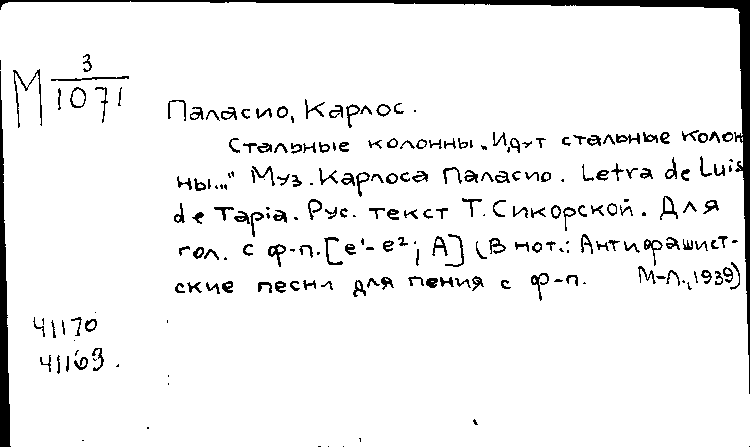 М 3/1071
Паласио, Карлос.
Стальные колонны. „Идут стальные колон
ны..." Муз. Карлоса Паласио. Letra de Luis
de Tapia. Рус. текст Т. Сикорской. Для
гол. с ф-п. [e¹-e²; A] (В нот.: Антифашист-
ские песни для пения с ф-п. М-Л., 1939)
41170
41169.